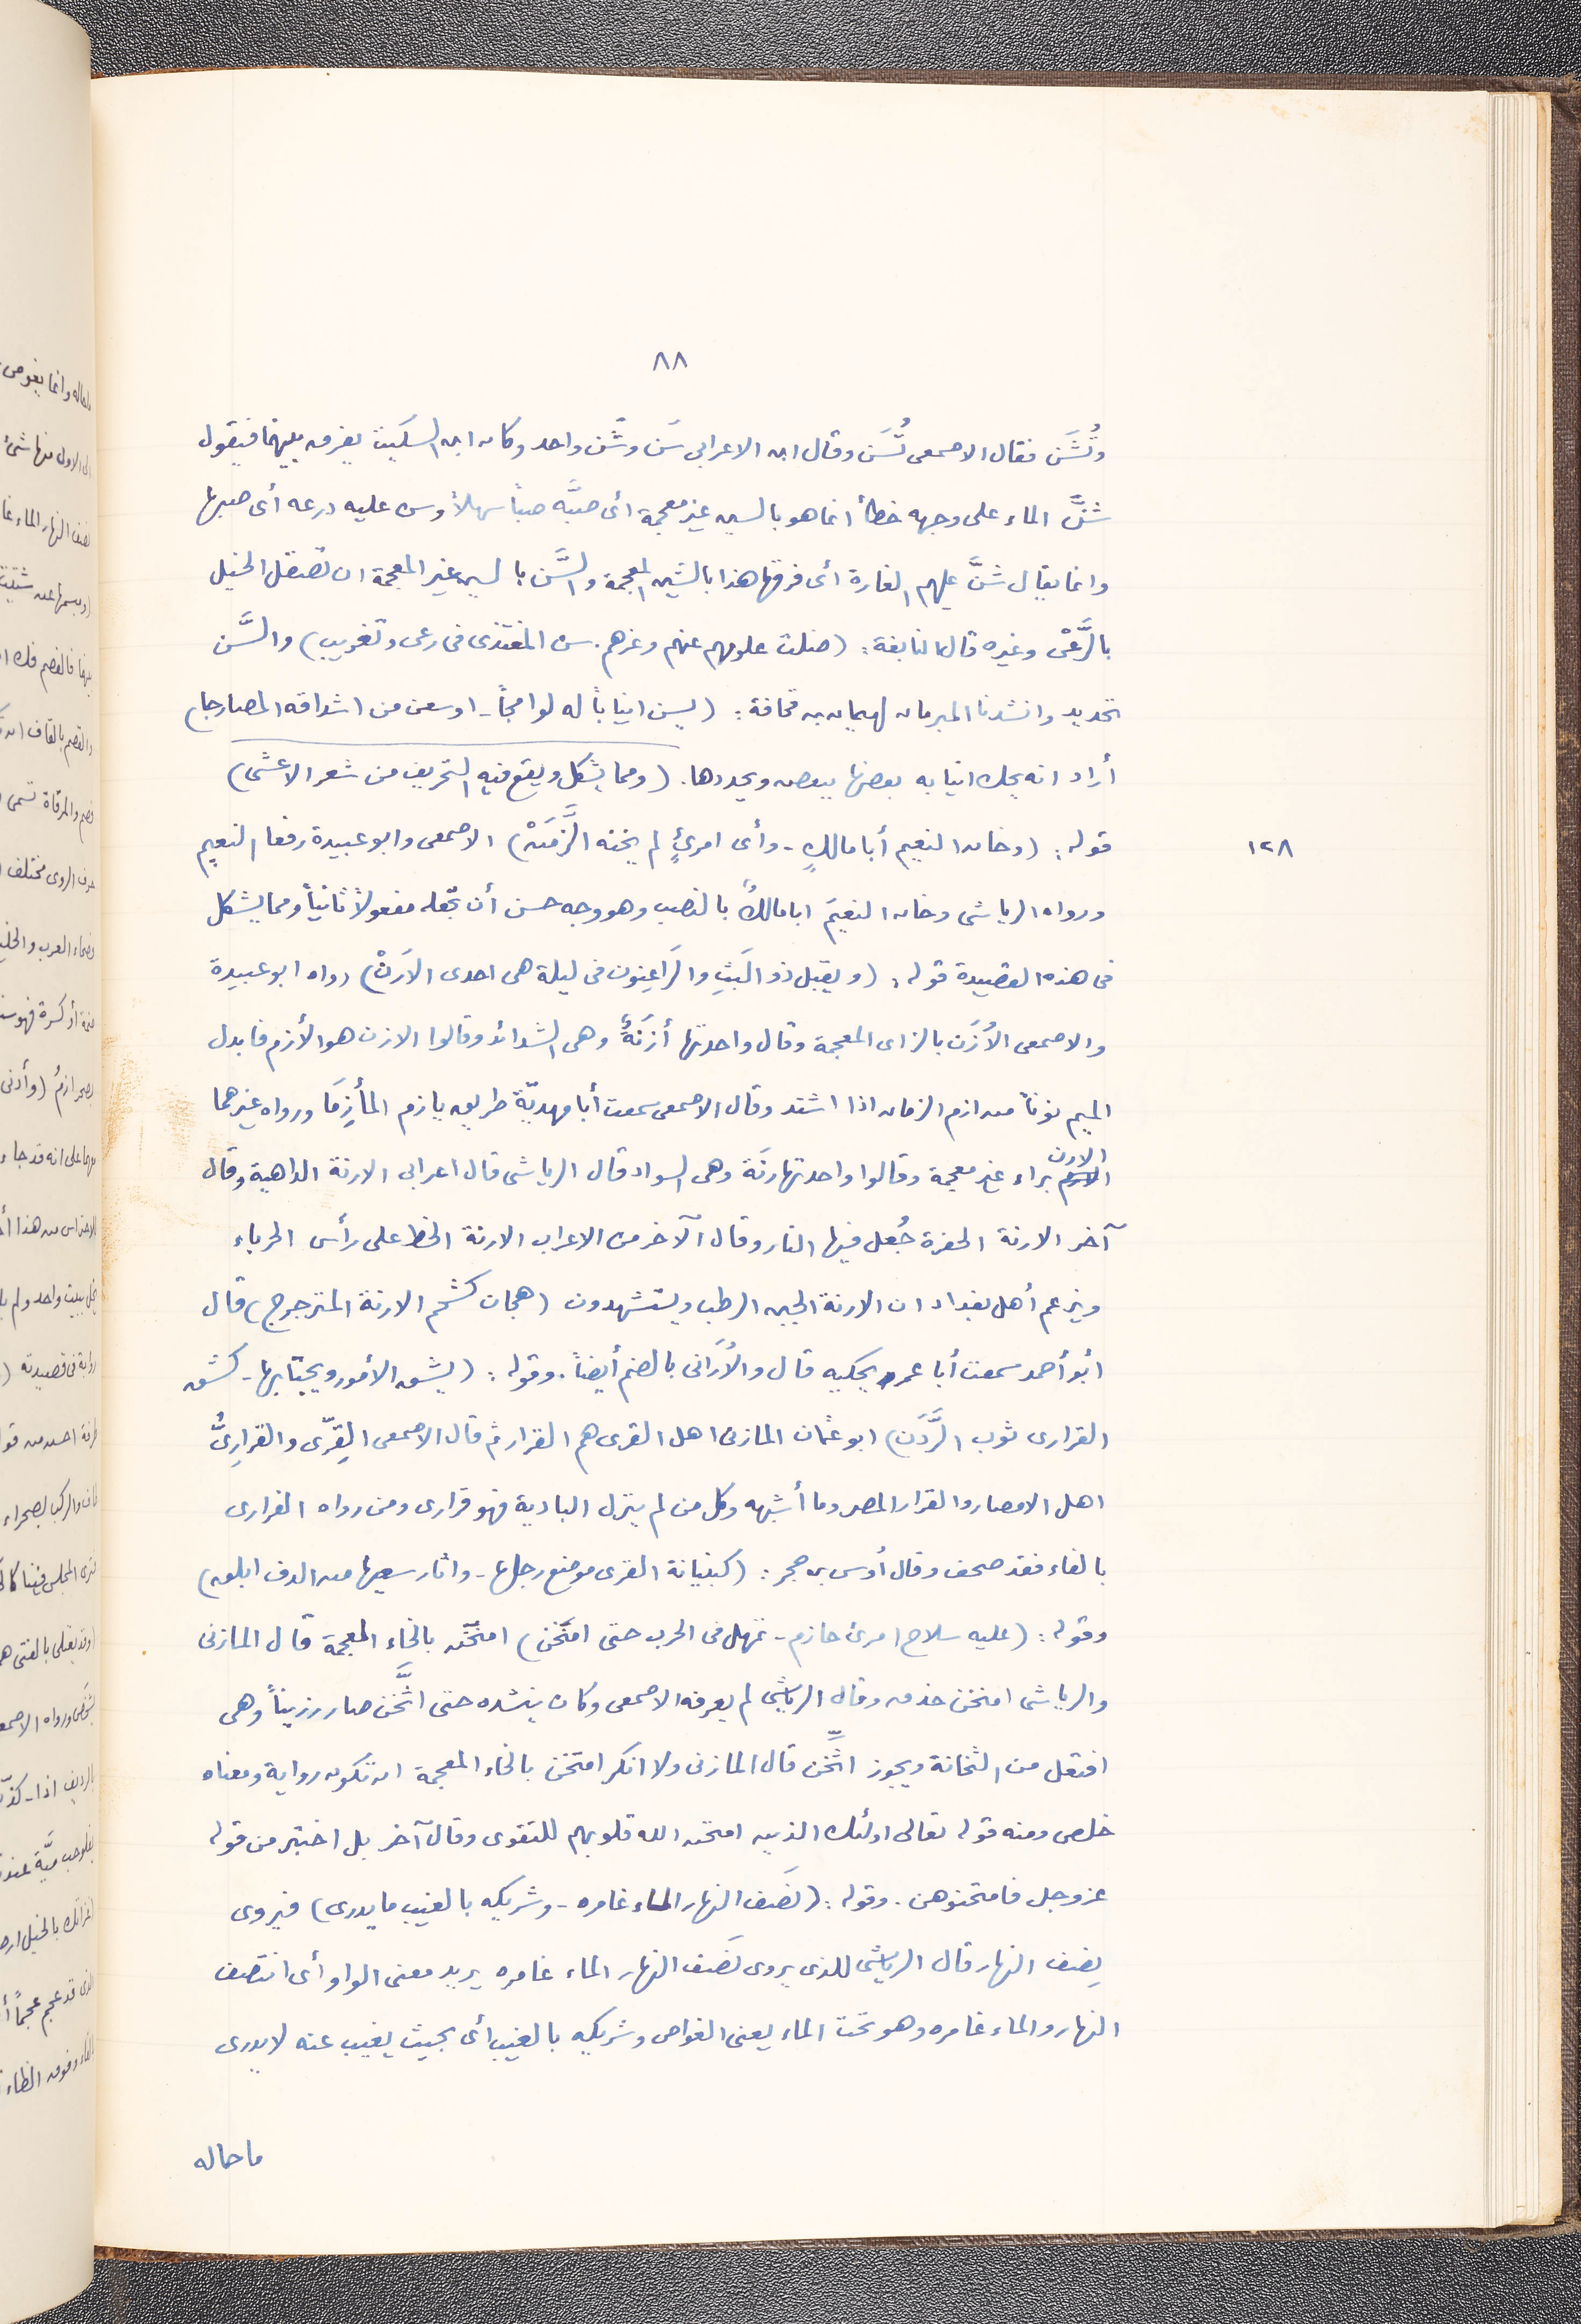 ٨٨
وتُشَن فقال الاصمعى تُسَن وقال ابن الاعرابى سَن وشَّن واحد وكان ابن السكيت يفرق بينهما فيقول
شنَّ الماء على وجهه خطأ انما هو بالسين غير معجمة أى صبَّه صباً سهلاً وسن عليه درعه أى صبها
وانما يقال شنَّ عليهم الغارة أى فرقها هذا بالشين المعجمة والسَّن بالسين غير المعجمة ان تصقل الخيل
بالرَّعْى وغيره قال النابغة: (ضلت حلومهم عنهم وغرهم. سن المغتذى فى رعى وتغريب) والسَّن
تحديد وانشدنا المبرمان لهميان بن قحافة: (يسن انياباً له لوامجاً - اوسعن من اشداقه المضارجا)
أراد انه يحك انيابه بعضها ببعض ويحددها. (ومما يشكل ويقع فيه التحريف من شعر الاعشى)
١٢٨
قوله: (وخان النعيم أبا مالكٍ - وأى امرئٍ لم يخنه الزَّمَنْ) الاصمعى وابو عبيدة رفعا النعيم
ورواه الرياشى وخان النعيمَ ابا مالكٌ بالنصب وهو وجه حسن أن تجعله مفعولاً ثانياً ومما يشكل
فى هذه القصيدة قوله: (ويقبل ذو البَثِ والرَاغِبون فى ليلة هى احدى الارَنْ) رواه ابو عبيدة
والاصمعى الأزَن بالزاى المعجمة وقال واحدتها أزنَةٌ وهى الشدائد وقالوا الازن هو الأزم فابدل
الميم نوناً من ازم الزمان اذا اشتد وقال الاصمعى سمعت أبا مهديّة طريق يازم المأزِمَا ورواه غيرهما
الارن براء غير معجمة وقالوا واحدتها رنَة وهى السواد قال الرياشى قال اعرابى الارنة الداهية وقال
آخر الارنة الحفرة جُعل فيها النار وقال الآخر من الاعراب الارنة الخط على رأس الحرباء
ويزعم أهل بغداد ان الارنة الجبن الرطب ويستشهدون (هجان كشحم الارنة المترجرج) قال
أبو أحمد سمعت أبا عمر يحكيه قال والأرَانى بالضم أيضاً. وقوله: (يشق الأمور ويجتابها - كشق
القرارى ثوب الرَّدَن) ابو عثمان المازنى اهل القرى هم القرار ثم قال الاصمعى القِرّى والقرارِىُّ
اهل الامصار والقرار المصر وما أشبهه وكل من لم ينزل البادية فهو قرارى ومن رواه الفرارى
بالفاء فقد صحف وقال أوس بن حجر: (كبنيانة القرى موضع رحلها - واثار نسعيها من الدف ابلق)
وقوله: (عليه سلاح امرئ حازم - تمهل فى الحرب حتى امتخن) امتخن بالخاء المعجمة قال المازنى
والرياشى امتخن حذق وقال الرياشى لم يعرفه الاصمعى وكان ينشده حتى اثَّخن صار رزيناً وهى
افتعل من الثخانة ويجوز اتَّخن قال المازنى ولا انكر امتخن بالخاء المعجمة ان تكون رواية ومعناه
خلص ومنه قوله تعالى اولئك الذين امتحن الله قلوبهم للتقوى وقال آخر بل اختبر من قوله
عز وجل فامتحنوهن. وقوله: (نصَف النهار الماء غامره - وشريكه بالغيب ما يدرى) فيروى
يصف النهار قال الرياشى للذى يروى نصَف النهار الماء غامره يريد معنى الواو أى انتصف
النهار والماء غامره وهو تحت الماء يعنى الغواص وشريكه بالغيب أى بحيث يغيب عنه لا يدرى
ما حاله